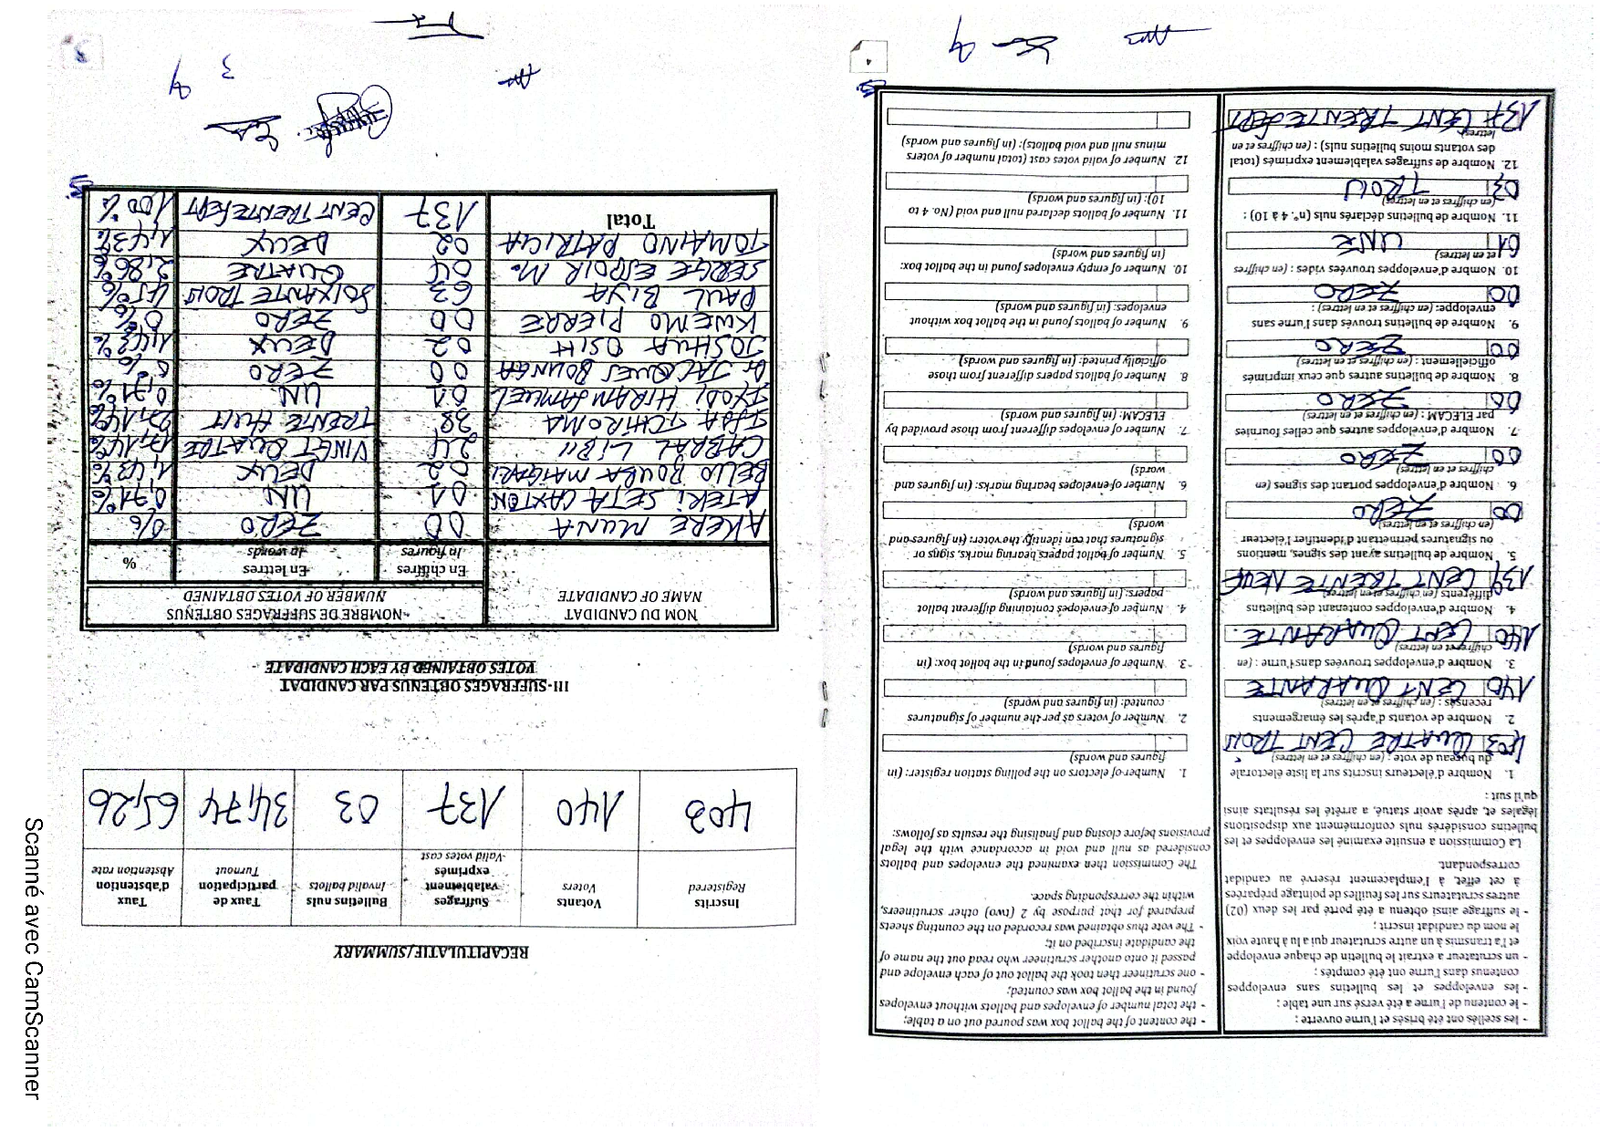 - les scellés ont été brisés et l'urne ouverte ;
- le contenu de l'urne a été versé sur une table ;
- les enveloppes et les bulletins sans enveloppes
contenus dans l'urne ont été comptés ;
- un scrutateur a extrait le bulletin de chaque enveloppe
et l'a transmis à un autre scrutateur qui a lu à haute voix
le nom du candidat inscrit ;
- le suffrage ainsi obtenu a été porté par les deux (02)
autres scrutateurs sur les feuilles de pointage préparées
à cet effet, à l'emplacement réservé au candidat
correspondant.
La Commission a ensuite examiné les enveloppes et les
bulletins considérés nuls conformément aux dispositions
légales et, après avoir statué, a arrêté les résultats ainsi
qu'il suit :
1. Nombre d'électeurs inscrits sur la liste électorale
du bureau de vote : (en chiffres et en lettres)
403 QUATRE CENT TROIS
2. Nombre de votants d'après les émargements
recensés : (en chiffres et en lettres)
140 CENT QUARANTE
3. Nombre d'enveloppes trouvées dans l'urne : (en
chiffres et en lettres)
140 CENT QUARANTE
4. Nombre d'enveloppes contenant des bulletins
différents (en chiffres et en lettres)
139 CENT TRENTE NEUF
5. Nombre de bulletins ayant des signes, mentions
ou signatures permettant d'identifier l'électeur
(en chiffres et en lettres)
00 ZERO
6. Nombre d'enveloppes portant des signes (en
chiffres et en lettres)
00 ZERO
7. Nombre d'enveloppes autres que celles fournies
par ELECAM : (en chiffres et en lettres)
00 ZERO
8. Nombre de bulletins autres que ceux imprimés
officiellement : (en chiffres et en lettres)
00 ZERO
9. Nombre de bulletins trouvés dans l'urne sans
enveloppe: (en chiffres et en lettres) :
00 ZERO
10. Nombre d'enveloppes trouvées vides : (en chiffres
et en lettres)
01 UNE
11. Nombre de bulletins déclarés nuls (n°. 4 à 10) :
(en chiffres et en lettres)
03 TROIS
12. Nombre de suffrages valablement exprimés (total
des votants moins bulletins nuls) : (en chiffres et en
lettres)
137 CENT TRENTE SEPT
- the content of the ballot box was poured out on a table;
- the total number of envelopes and ballots without envelopes
found in the ballot box was counted;
- one scrutineer then took the ballot out of each envelope and
passed it onto another scrutineer who read out the name of
the candidate inscribed on it;
- The vote thus obtained was recorded on the counting sheets
prepared for that purpose by 2 (two) other scrutineers,
within the corresponding space.
The Commission then examined the envelopes and ballots
considered as null and void in accordance with the legal
provisions before closing and finalising the results as follows:
1. Number of electors on the polling station register: (in
figures and words)
2. Number of voters as per the number of signatures
counted: (in figures and words)
3. Number of envelopes found in the ballot box: (in
figures and words)
4. Number of envelopes containing different ballot
papers: (in figures and words)
5. Number of ballot papers bearing marks, signs or
signatures that can identify the voter: (in figures and
words)
6. Number of envelopes bearing marks: (in figures and
words)
7. Number of envelopes different from those provided by
ELECAM: (in figures and words)
8. Number of ballots papers different from those
officially printed: (in figures and words)
9. Number of ballots found in the ballot box without
envelopes: (in figures and words)
10. Number of empty envelopes found in the ballot box:
(in figures and words)
11. Number of ballots declared null and void (No. 4 to
10): (in figures and words)
12. Number of valid votes cast (total number of voters
minus null and void ballots): (in figures and words)
RECAPITULATIF/SUMMARY
Inscrits Registered | Votants Voters | Suffrages valablement exprimés Valid votes cast | Bulletins nuls Invalid ballots | Taux de participation Turnout | Taux d'abstention Abstention rate
403 140 137 03 34,74 65,26
III- SUFFRAGES OBTENUS PAR CANDIDAT
VOTES OBTAINED BY EACH CANDIDATE
NOM DU CANDIDAT NOMBRE DE SUFFRAGES OBTENUS
NAME OF CANDIDATE NUMBER OF VOTES OBTAINED
En chiffres En lettres %
In figures In words
AKERE MUNA 00 ZERO 0%
ATEKI SETA CAXTON 01 UN 0,71%
BELLO BOUBA MAIGARI 02 DEUX 1,43%
CABRAL LIBII 24 VINGT QUATRE 17,14%
ISSA TCHIROMA 38 TRENTE HUIT 27,14%
IYODI HIRAM SAMUEL 01 UN 0,71%
Dr JACQUES BOUNGHA 00 ZERO 0%
JOSHUA OSIH 02 DEUX 1,43%
KWEMO PIERRE 00 ZERO 0%
PAUL BIYA 63 SOIXANTE TROIS 45%
SERGE ESPOIR M. 04 QUATRE 2,86%
TOMAINO PATRICIA 02 DEUX 1,43%
Total 137 CENT TRENTE SEPT 100%
Scanné avec CamScanner